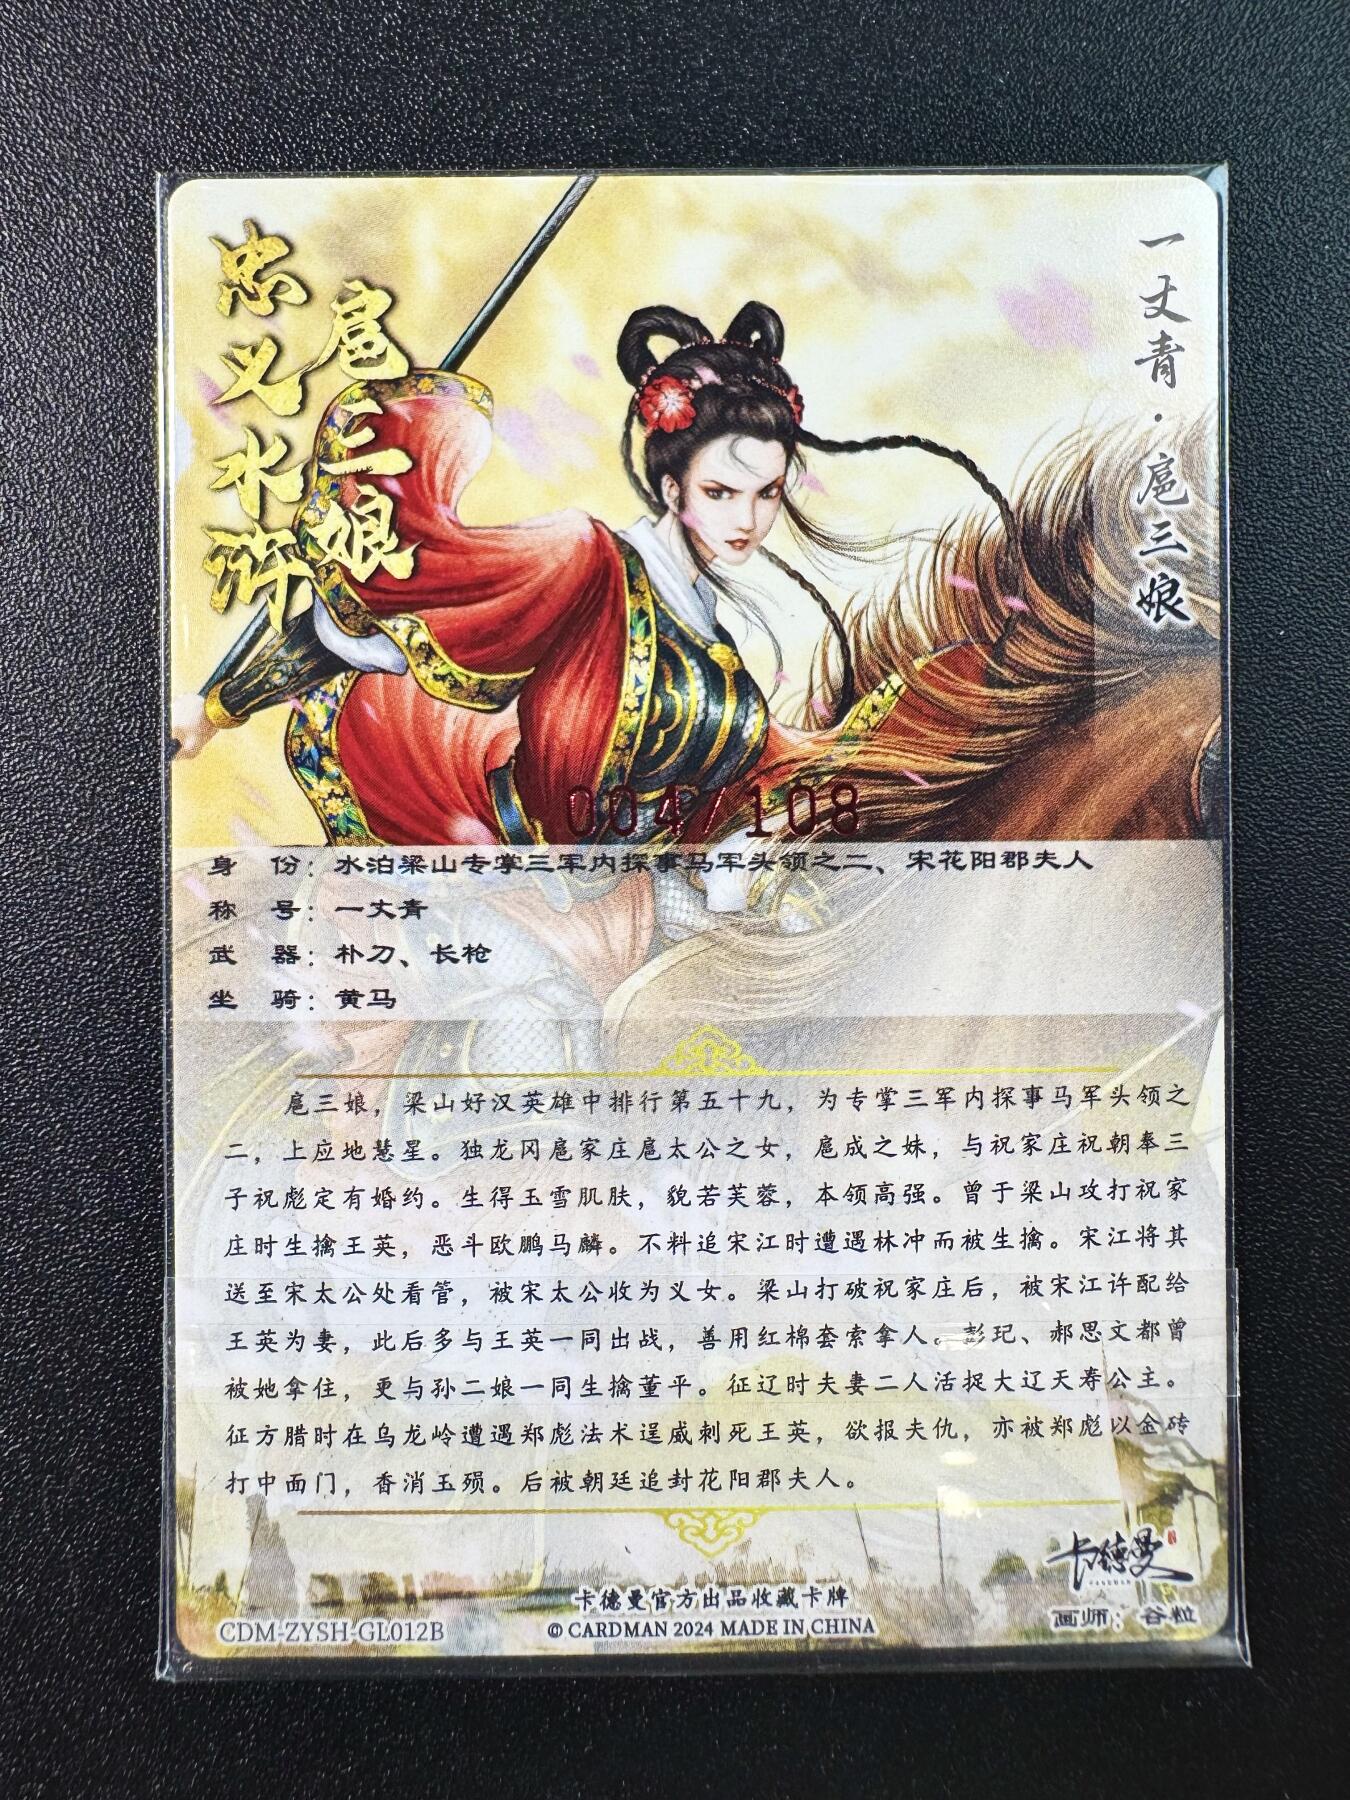 忠义水浒
扈三娘
一丈青·扈三娘
004/108
身 份：水泊梁山专掌三军内探事马军头领之二、宋花阳郡夫人
称 号：一丈青
武 器：朴刀、长枪
坐 骑：黄马
扈三娘，梁山好汉英雄中排行第五十九，为专掌三军内探事马军头领之
二，上应地慧星。独龙冈扈家庄扈太公之女，扈成之妹，与祝家庄祝朝奉三
子祝彪定有婚约。生得玉雪肌肤，貌若芙蓉，本领高强。曾于梁山攻打祝家
庄时生擒王英，恶斗欧鹏马麟。不料追宋江时遭遇林冲而被生擒。宋江将其
送至宋太公处看管，被宋太公收为义女。梁山打破祝家庄后，被宋江许配给
王英为妻，此后多与王英一同出战，善用红棉套索拿人。彭玘、郝思文都曾
被她拿住，更与孙二娘一同生擒董平。征辽时夫妻二人活捉大辽天寿公主。
征方腊时在乌龙岭遭遇郑彪法术逞威刺死王英，欲报夫仇，亦被郑彪以金砖
打中面门，香消玉殒。后被朝廷追封花阳郡夫人。
卡德曼
画师：谷粒
卡德曼官方出品收藏卡牌
CDM-ZYSH-GL012B
© CARDMAN 2024 MADE IN CHINA